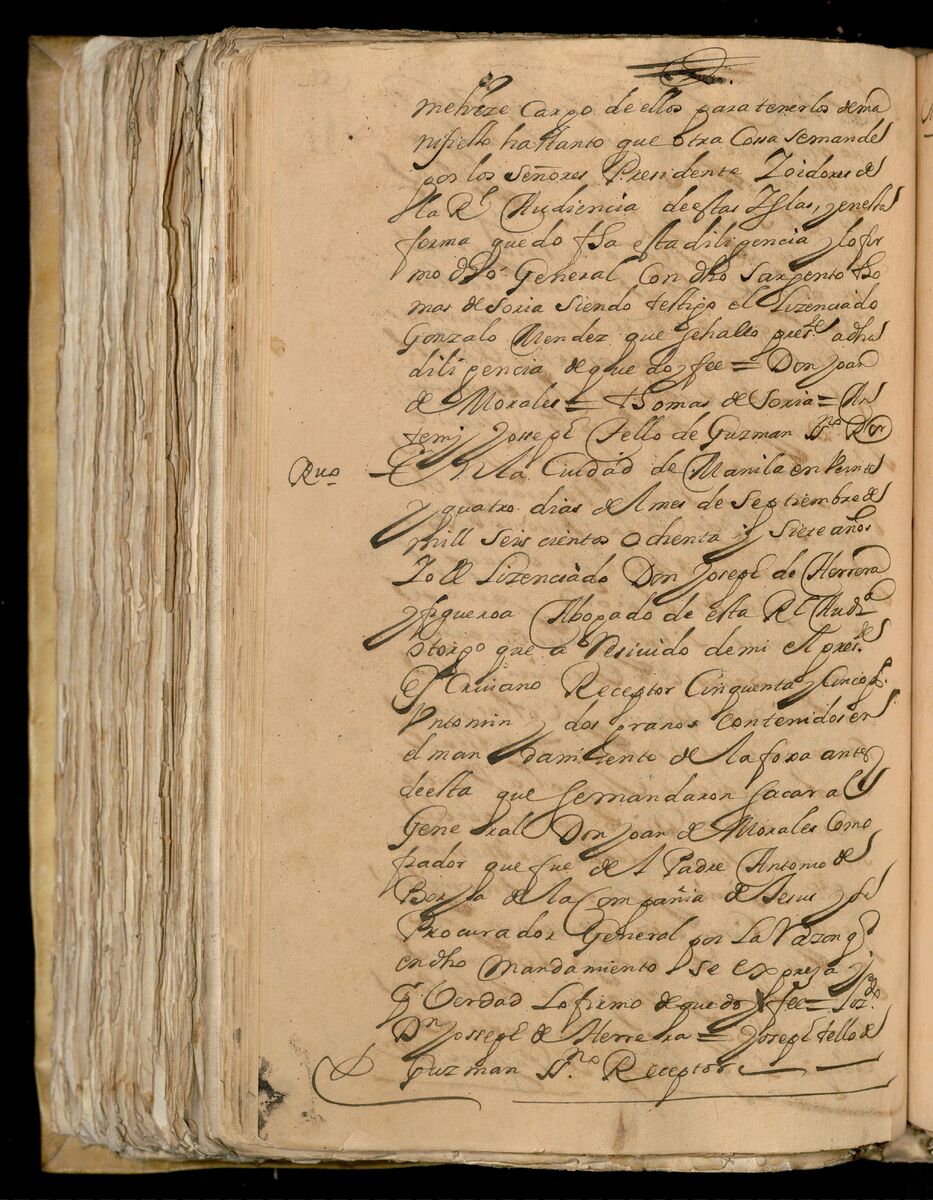 mehize cargo de ellos para tenerlos de ma
nifiesto hasttanto que otra Cossa semande
por los Señores Presidente Zoidores de
la Rl Audiencia de estas Yslas, y en esta
forma quedo fha esta diligencia y lo fir
mo dho General Con dho Sargento tho
mas de Soria siendo testigo el Lizenciado
Gonzalo Mendez que sehallo preste adha
diligencia de que doy fee = Don Joan
de Morales = thomas de Soria = An
temj Joseph Tello de Guzman Sno Ror
Ruo
En la Ciudad de Manila en Veinte
y quatro dias del mes de Septiembre de
mill seis cientos ochenta y siete años
Yo el Lizenciado Don Joseph de Herrera
y figueroa Abogado de esta Rl Auda
otorgo que a Resiuido de mi el preste
Escriuano Receptor Cinquenta y Cinco ps
Vntomin y dos granos contenidos en
el man damiento de la foxa antes
de esta que semandaron sacar al
General Don Joan de Morales Como
fiador que fue del Padre Antonio de
Borja de la Compañia de Jesus y su
Procurador General por La Razon qe
en dho Mandamiento se expresa y
qe Verdad Lo firmo de que doy fee = Lizdo
Dn Josseph de Herrera = Joseph tello de
Guzman Sno Receptor